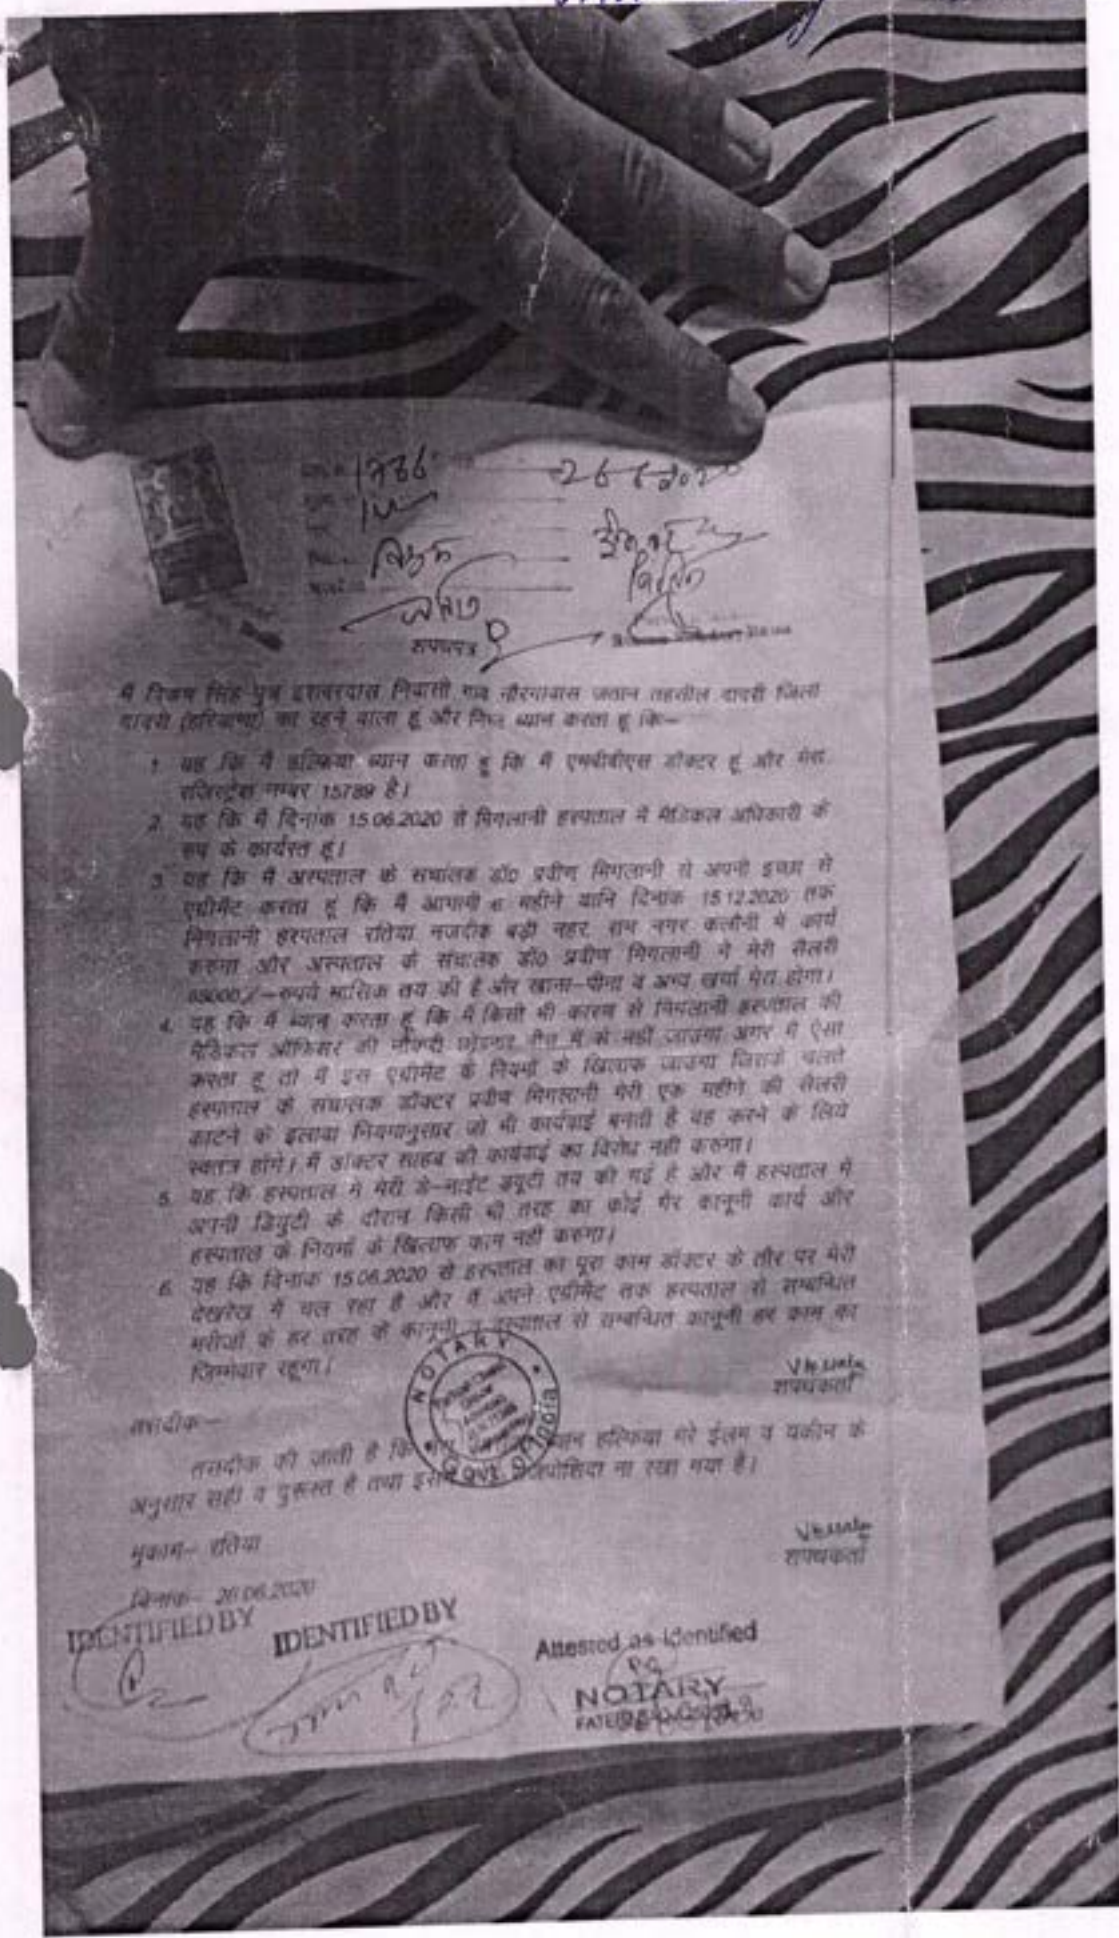 1786
26 6 2020
शपथपत्र
मै विक्रम सिंह पुत्र निवासी गाव नौरंगावास जतान तहसील दादरी जिला
दादरी (हरियाणा) का रहने वाला हूं और निम्न ब्यान करता हू कि—
1. यह कि मै हल्फिया ब्यान करता हू कि मै एमबीबीएस डॉक्टर हूं और मेरा
रजिस्ट्रेशन नम्बर 15789 है।
2. यह कि मै दिनांक 15.06.2020 से मिगलानी हस्पताल मे मैडिकल अधिकारी के
रूप के कार्यरत हूं।
3. यह कि मै अस्पताल के सचांलक डॉ0 प्रवीण मिगलानी से अपनी इच्छा से
एग्रीमेंट करता हू कि मै आगामी 6 महीने यानि दिनांक 15.12.2020 तक
मिगलानी हस्पताल रतिया नजदीक बड़ी नहर, राम नगर कलोनी मे कार्य
करुगा और अस्पताल के संचालक डॉ0 प्रवीण मिगलानी ने मेरी सैलरी
/—रुपये मासिक तय की है और खाना—पीना व अन्य खर्चा मेरा होगा।
4. यह कि मै ब्यान करता हू कि मै किसी भी कारण से मिगलानी हस्पताल की
मैडिकल ऑफिसर की नौकरी छोड़कर बीच मे से नही जाउंगा अगर मे ऐसा
करता हू तो मै इस एग्रीमेंट के नियमों के खिलाफ जाउंगा जिसके चलते
हस्पताल के सचांलक डॉक्टर प्रवीण मिगलानी मेरी एक महीने की सैलरी
काटने के इलावा नियमानुसार जो भी कार्यवाई बनती है वह करने के लिये
स्वतंत्र होंगे। मैं डॉक्टर साहब की कार्यवाई का विरोध नही करुगा।
5. यह कि हस्पताल मे मेरी डे—नाईट ड्यूटी तय की गई है और मै हस्पताल मे
अपनी डियुटी के दौरान किसी भी तरह का कोई गैर कानूनी कार्य और
हस्पताल के नियमों के खिलाफ काम नही करुगा।
6. यह कि दिनांक 15.06.2020 से हस्पताल का पूरा काम डॉक्टर के तौर पर मेरी
देखरेख मे चल रहा है और मै अपने एग्रीमेंट तक हस्पताल से सम्बन्धित
मरीजों के हर तरह के कानूनी व हस्पताल से सम्बन्धित कानूनी हर काम का
जिम्मेवार रहूगा।
शपथकर्ता
NOTARY
GOVT. OF INDIA
तसदीक—
तसदीक की जाती है कि ब्यान हल्फिया मेरे ईलम व यकीन के
अनुसार सही व दुरुस्त है तथा इसमें पोशिदा ना रखा गया है।
मुकाम— रतिया
शपथकर्ता
दिनांक— 26.06.2020
IDENTIFIED BY
IDENTIFIED BY
Attested as Identified
NOTARY